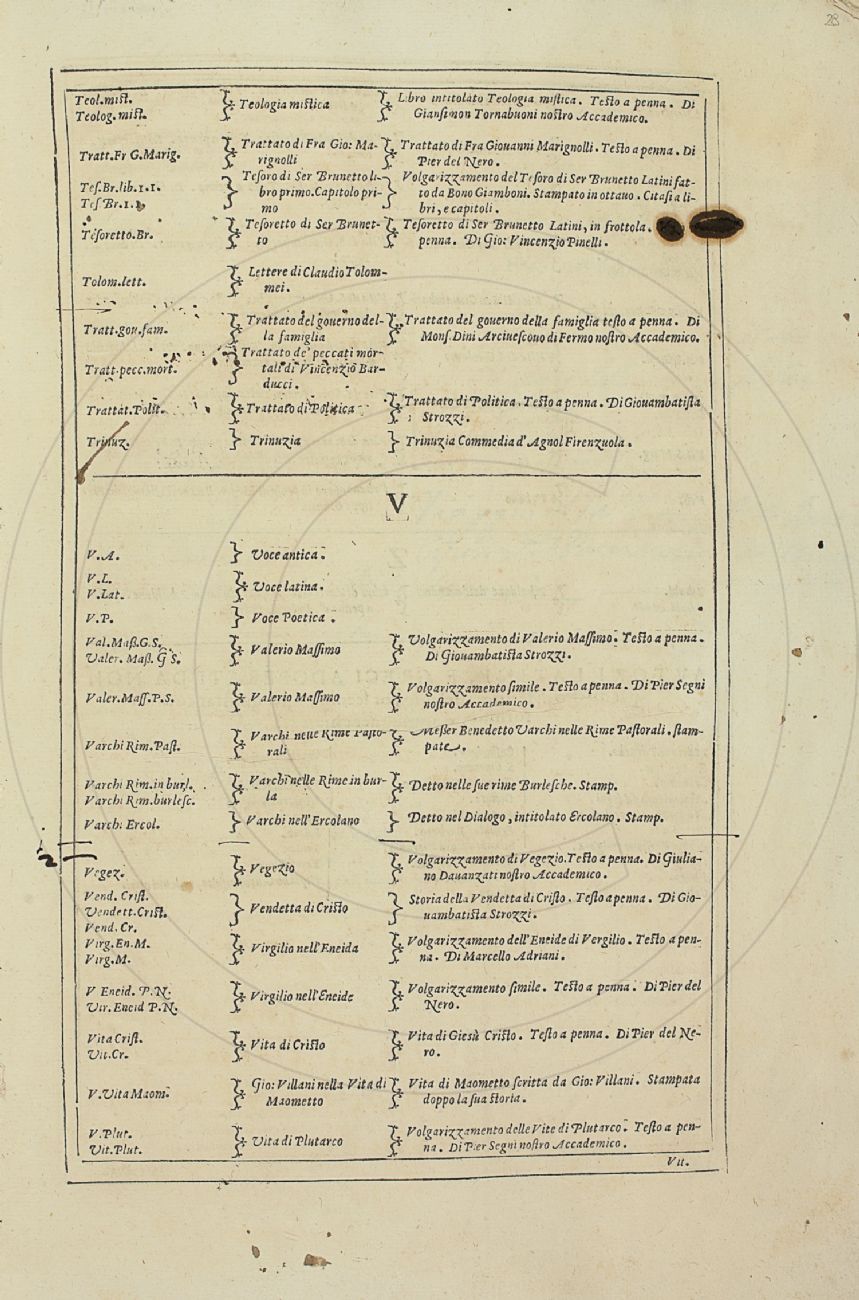 28
Teol.mist.
Teolog.mist.
Teologia mistica
Libro intitolato Teologia mistica. Testo a penna. Di
Giansimon Tornabuoni nostro Accademico.
Tratt.Fr G.Marig.
Trattato di Fra Gio: Ma-
rignolli
Trattato di Fra Giouanni Marignolli. Testo a penna. Di
Pier del Nero.
Tes.Br.lib.1.1.
Tes Br.1.1.
Tesoro di Ser Brunetto li-
bro primo.Capitolo pri-
mo
Volgarizzamento del Tesoro di Ser Brunetto Latini fat-
to da Bono Giamboni. Stampato in ottauo. Citasi a li-
bri, e capitoli.
Tesoretto.Br.
Tesoretto di Ser Brunet-
to
Tesoretto di Ser Brunetto Latini, in frottola.
penna. Di Gio: Vincenzio Pinelli.
Tolom.lett.
Lettere di Claudio Tolom-
mei.
Tratt.gou.fam.
Trattato del gouerno del-
la famiglia
Trattato del gouerno della famiglia testo a penna. Di
Mons.Dini Arciuescouo di Fermo nostro Accademico.
Tratt.pecc.mort.
Trattato de' peccati mor-
tali di Vincenzio Bar-
ducci.
Trattat.Polit.
Trattato di Politica
Trattato di Politica. Testo a penna. Di Giouambatista
Strozzi.
Trinuz.
Trinuzia
Trinuzia Commedia d'Agnol Firenzuola.
V
V.A.
Voce antica.
V.L.
V.Lat.
Voce latina.
V.P.
Voce Poetica.
Val.Maß.G.S.
Valer. Maß. G S.
Valerio Massimo
Volgarizzamento di Valerio Massimo. Testo a penna.
Di Giouambatista Strozzi.
Valer.Mass.P.S.
Valerio Massimo
Volgarizzamento simile. Testo a penna. Di Pier Segni
nostro Accademico.
Varchi Rim.Past.
Varchi nelle Rime Pasto-
rali
Meßer Benedetto Varchi nelle Rime Pastorali. stam-
pate.
Varchi Rim.in burl.
Varchi Rim.burlesc.
Varchi nelle Rime in bur-
la
Detto nelle sue rime Burlesche. Stamp.
Varchi Ercol.
Varchi nell'Ercolano
Detto nel Dialogo, intitolato Ercolano. Stamp.
Vegez.
Vegezio
Volgarizzamento di Vegezio.Testo a penna. Di Giulia-
no Dauanzati nostro Accademico.
Vend. Crist.
Vendett.Crist.
Vend. Cr.
Vendetta di Cristo
Storia della Vendetta di Cristo. Testo a penna. Di Gio-
uambatista Strozzi.
Virg.En.M.
Virg.M.
Virgilio nell'Eneida
Volgarizzamento dell'Eneide di Vergilio. Testo a pen-
na. Di Marcello Adriani.
V Eneid. P.N.
Vir.Eneid P.N.
Virgilio nell'Eneide
Volgarizzamento simile. Testo a penna. Di Pier del
Nero.
Vita Crist.
Vit.Cr.
Vita di Cristo
Vita di Giesù Cristo. Testo a penna. Di Pier del Ne-
ro.
V.Vita Maom.
Gio: Villani nella Vita di
Maometto
Vita di Maometto scritta da Gio: Villani. Stampata
doppo la sua storia.
V.Plut.
Vit.Plut.
Vita di Plutarco
Volgarizzamento delle Vite di Plutarco. Testo a pen-
na. Di Pier Segni nostro Accademico.
Vit.